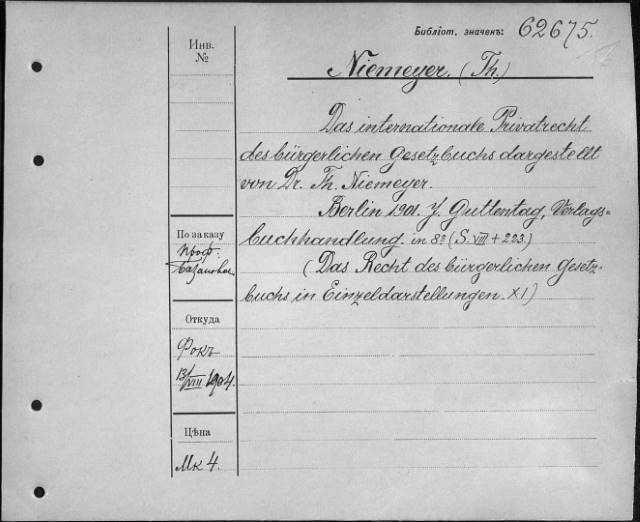 Библіот. значенъ: 62675.
Инв.
№
Niemeyer. (Th.)
Das internationale Privatrecht
des bürgerlichen Gesetzbuchs dargestellt
von Dr. Th. Niemeyer.
Berlin 1901. J. Guttentag, Verlags-
buchhandlung. in 8º (S. VIII + 223.)
(Das Recht des bürgerlichen Gesetz-
buchs in Einzeldarstellungen. XI)
По заказу
Проф.
Откуда
Фокъ
13/VIII 1904.
Цѣна
Мк 4.